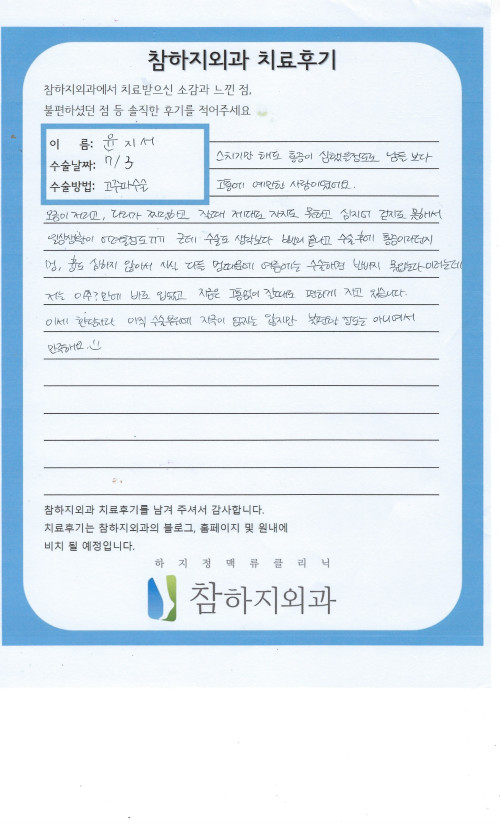 참하지외과 치료후기
참하지외과에서 치료받으신 소감과 느낀 점,
불편하셨던 점 등 솔직한 후기를 적어주세요
이 름: 윤지서
수술날짜: 7/3
수술방법: 고주파수술
스치기만 해도 통증이 심했을정도로 남들 보다
고통에 예민한 사람이였어요.
오금이 저리고, 다리가 찌릿하고 잘때 제대로 자지도 못하고 심지어 걷지도 못해서
일상생활이 어려웠을정도 근데 수술도 생각보다 빨리 끝나고 수술후에 통증이라던지
멍, 흉도 심하지 않아서 사실 다들 멍때문에 여름에는 수술하면 반바지 못입는다 이러는데
저는 이주?만에 바로 입었고 지금은 고통없이 잘때도 편하게 자고 있습니다.
이제 한달차라 아직 수술부위에 자국이 남지는 않지만 불편한 정도는 아니여서
만족해요.
참하지외과 치료후기를 남겨 주셔서 감사합니다.
치료후기는 참하지외과의 블로그, 홈페이지 및 원내에
비치 될 예정입니다.
하지정맥류클리닉
참하지외과